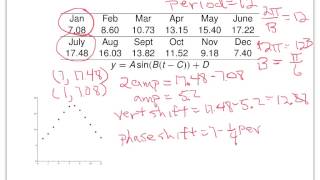 period=12
Jan Feb Mar Apr May June
7.08 8.60 10.73 13.15 15.40 17.22
July Aug Sept Oct Nov Dec
17.48 16.03 13.82 11.52 9.18 7.40
y = Asin(B(t − C)) + D
2π/B = 12
2π = 12B
B = π/6
(7, 17.48)
(1, 7.08)
2amp = 17.48 - 7.08
amp = 5.2
vert shift = 17.48 - 5.2 = 12.28
phase shift = 7 - 1/4 per